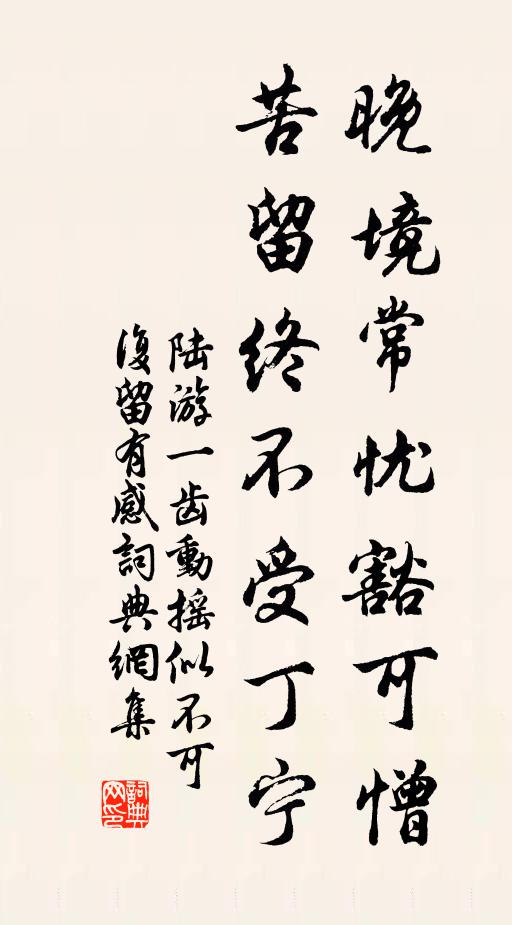 晚境常忧豁可憎
苦留终不受丁宁
陆游一齿動摇似不可
復留有感詞典網集
詞典網印